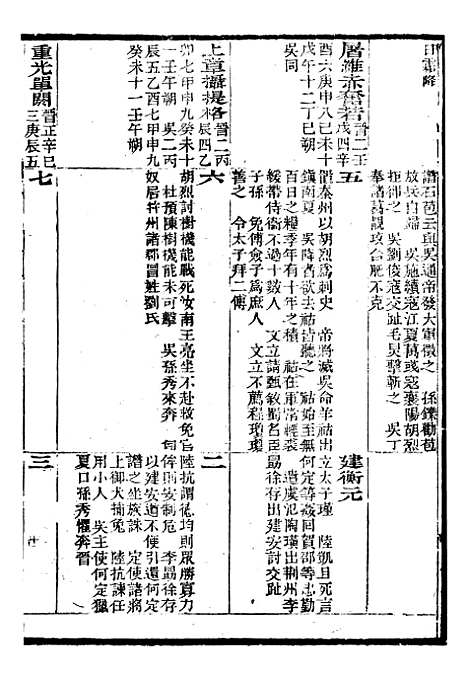 譖石苞云與吳通帝發大軍徵之　孫鑠勸苞
放兵自歸　吳施績寇江夏萬彧寇襄陽胡烈
拒卻之　吳劉俊寇交趾毛炅擊斬之　吳丁
奉諸葛靚攻合肥不克
屠維赤奮若
晉二壬
戊四辛
酉六庚申八己未十
戊午十二丁巳朔
吳同
五
置秦州以胡烈爲刺史　帝將減吳命羊祜出
鎮南夏　吳降者欲去祜皆聽之　祜始至無
百日之糧季年有十年之積　祜在軍常輕裘
緩帶侍衛不過十數人　文立請甄敘蜀名臣
子孫　免傅僉子爲庶人　文立不薦程瓊瓊
善之　令太子拜二傅
建衡元
立太子瑾　陸凱且死言
何定等姦回賀邵等忠勤
遣虞汜陶璜出荆州李
勗徐存出建安討交趾
上章攝提格
晉二丙
辰四乙
卯七甲申九
癸未十一壬午朔　吳二丙
辰五乙酉七甲申九
癸未十一壬午朔
六
胡烈與樹機能戰死汝南王亮坐不赴救免官
杜預陳樹機能未可擊　吳孫秀來奔　匈
奴居幷州諸郡冒姓劉氏
二
陸抗謂德均則眾勝寡力
侔則安制危　李勗徐存
以建安道不便引還何定
譖之坐族誅　定使諸將
上御犬捕兔　陸抗諫任
用小人　吳主使何定獵
夏口孫秀懼奔晉
重光單閼
晉正辛巳
三庚辰五
七
三